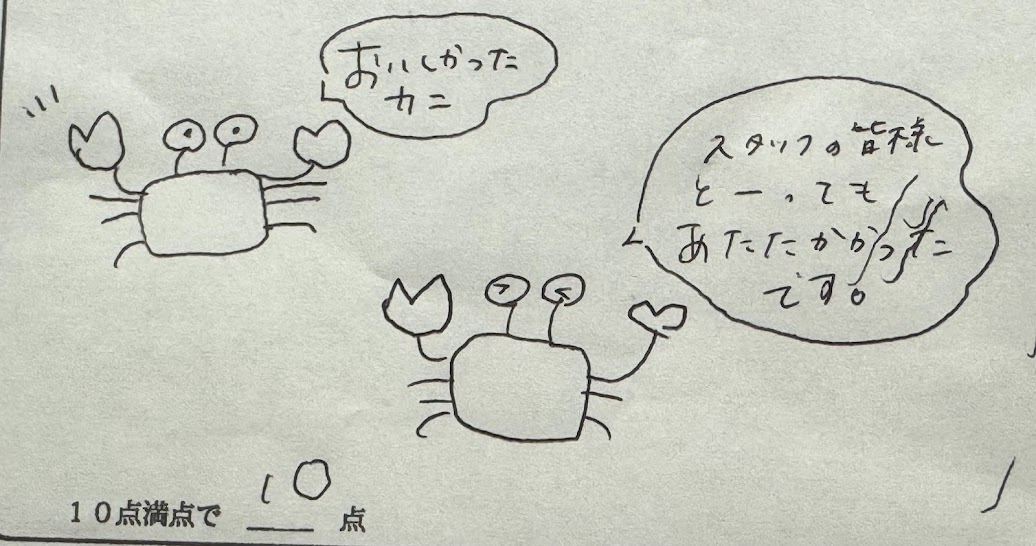 おいしかった
カニ
スタッフの皆様
とーっても
あたたかかった
です。
10点満点で 10 点